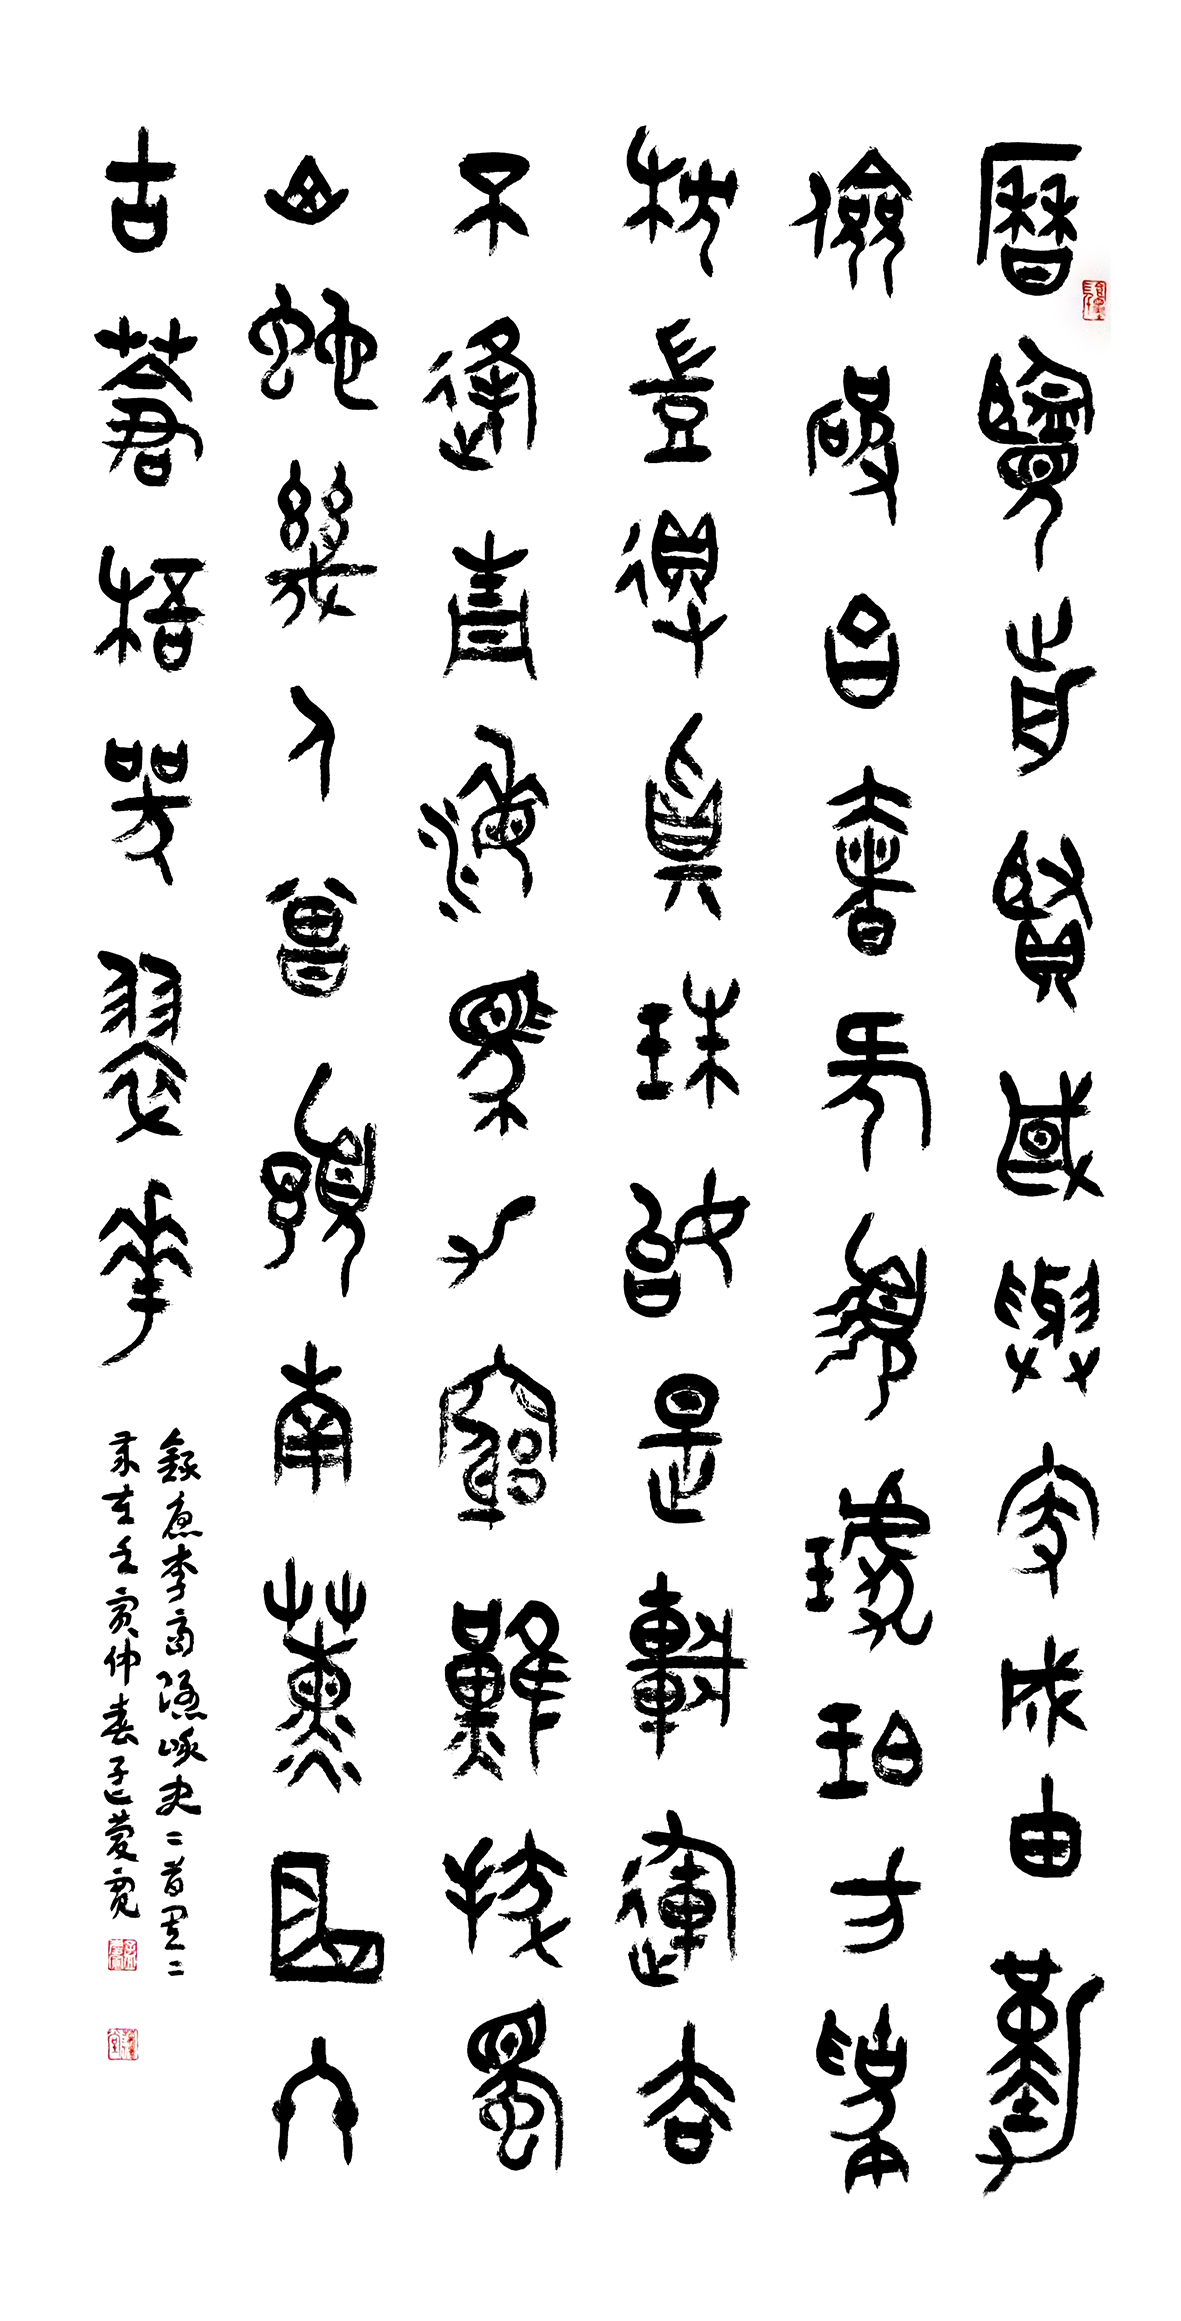 曆覽前賢國與家成由勤
儉破由奢何須琥珀方為
枕豈得真珠始是車運去
不逢青海馬力窮難拔蜀
山蛇幾人曾預南薰曲終
古蒼梧哭翠華
錄唐李商隱詠史二首其二
歲在壬寅仲春